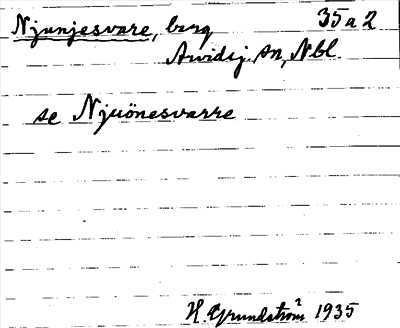 Njunjesvare, berg 35a2
Arvidsj. sn, Nbl.
se Njuönesvarre
H. Grundström 1935